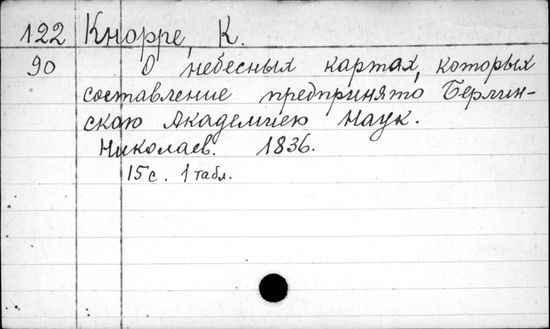 122 Кнорре, К.
90 О небесных картах, которых
составление предпринято Берлин-
скою Академиею Наук.
Николаев. 1836.
15 с. 1 табл.